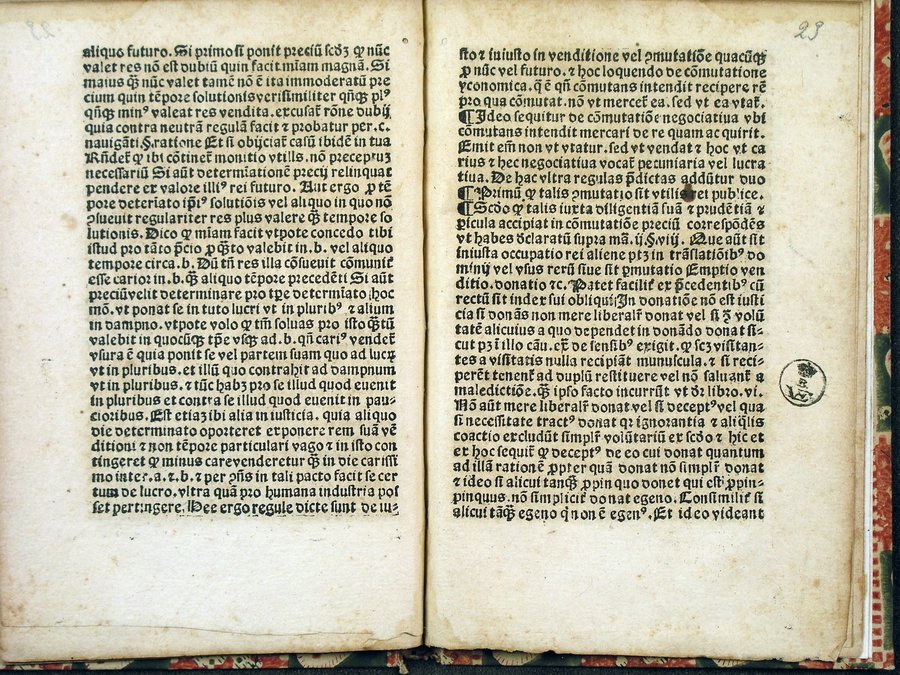 aliquo futuro. Si primo si ponit preciū scd̄ꝫ ꝙ nūc
valet res nō est dubiū quin facit m̄iam magnā. Si
maius qꝫ̄ nūc valet tamē nō ē ita immoderatū pre
cium quin tēpore solutionis verisimiliter qn̄qꝫ plꝰ
qn̄qꝫ minꝰ valeat res vendita. excusat̄ rōne dubij
quia contra neutrā regulā facit ⁊ probatur per .c.
naviganti §. ratione Et si obijciat̄ casū ibidē in tua
ꝙ ibi cōtinet̄ monitio vtilis. nō preceptuꝫ
necessariū Si aūt determīationē precij relinquat
pendere ex valore illiꝰ rei futuro. Aut ergo ꝓ tē
pore determīato ip̄iꝰ solutiōis vel aliquo in quo nō
ꝯsueuit regulariter res plus valere qꝫ̄ tempore so
lutionis. Dico ꝙ m̄iam facit vtpote concedo tibi
istud pro tāto p̄cio ꝓ qꝫ̄to valebit in .b. vel aliquo
tempore circa .b. Dū tn̄ res illa cōsueuit
esse carior in .b. qꝫ̄ aliquo tēpore precedēti Si aūt
preciū velit determinare pro tp̄e determīato hoc
mō. vt ponat se in tuto lucri vt in pluribꝰ ⁊ alium
in dampno. vtpote volo ꝙ tm̄ soluas pro isto qꝫ̄tū
valebit in quocūqꝫ tp̄e vsqꝫ ad .b. qn̄ cariꝰ vendet̄
vsura ē quia ponit se vel partem suam quo ad lucꝝ
vt in pluribus. et illū quo contrahit ad dampnum
vt in pluribus. ⁊ tūc habꝫ pro se illud quod euenit
in pluribus et contra se illud quod euenit in pau⸗
cioribus. Est etiaꝫ ibi alia iniusticia. quia aliquo
die determinato oporteret exponere rem suā vē
ditioni ⁊ non tēpore particulari vago ⁊ in isto con
tingeret ꝙ minus care venderetur qꝫ̄ in die carissi
mo inter .a. ⁊ .b. ⁊ per ꝯn̄s in tali pacto facit se cer
tum de lucro. vltra quā pro humana industria pos
set pertingere. Hee ergo regule dicte sunt de iu⸗
23
sto ⁊ iniusto in venditione vel ꝯmutatiōe quacūqꝫ
ꝓ nūc vel futuro. ⁊ hoc loquendo de cōmutatione
yconomica. q̄ ē qn̄ cōmutans intendit recipere rē
pro qua cōmutat. nō vt mercet̄ ea. sed vt ea vtat̄.
¶ Ideo sequitur de cōmutatiōe negociatiua vbi
cōmutans intendit mercari de re quam acquirit.
Emit em̄ non vt vtatur. sed vt vendat ⁊ hoc vt ca
rius ⁊ hec negociatiua vocat̄ pecuniaria vel lucra
tiua. De hac vltra regulas p̄dictas addūtur duo
¶ Primū ꝙ talis ꝯmutatio sit vtilis rei publice.
¶ Scd̄o ꝙ talis iuxta diligentiā suā ⁊ prudētiā ⁊
ꝑicula accipiat in cōmutatiōe preciū correspōdēs
vt habes declaratū supra mā. ij. §. viij. Que aūt sit
iniusta occupatio rei aliene ptꝫ in trāslatiōibꝰ do
minij vel vsus rerū siue sit ꝑmutatio Emptio ven
ditio. donatio ⁊c. Patet ex p̄cedentibꝰ cū
rectū sit index sui obliqui. In donatiōe nō est iusti
cia si donās non mere donat vel si volū
tatē alicuius a quo dependet in donādo donat si⸗
cut pꝫ ī illo cāu. ex̄. de sensibꝰ exigit. ꝙ scꝫ visitan⸗
tes a visitatis nulla recipiāt munuscula. ⁊ si reci⸗
perēt ad duplū restituere vel nō a
maledictiōe. ipso facto incurrūt vt dr̄ libro. vi.
Nō aūt mere donat vel si deceptꝰ vel qua
si necessitate tractꝰ donat qr ignorantia ⁊
coactio excludūt simplr̄ volūtariū ex scd̄o ⁊ hic et
ex hoc sequit̄ ꝙ deceptꝰ de eo cui donat quantum
ad illā rationē ꝓpter quā donat nō simplr̄ donat
⁊ ideo si alicui tanqꝫ̄ ꝓpinquo donet qui est ꝓpin⸗
pinquus. nō donat egeno. si
alicui tāqꝫ̄ egeno q̄ non ē egenꝰ. Et ideo videant